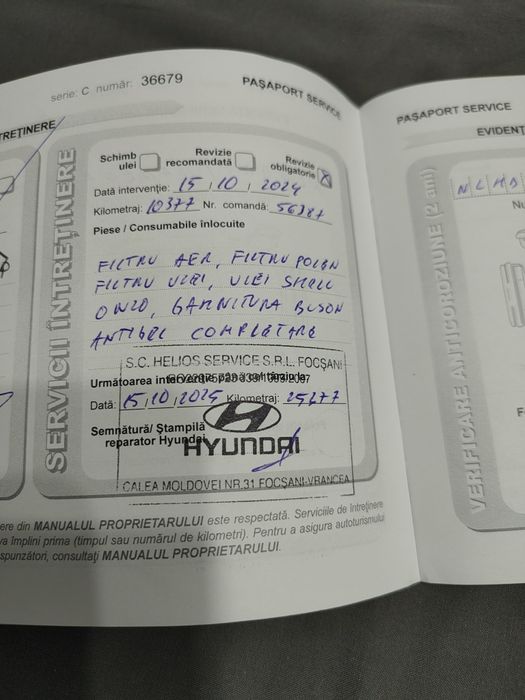 serie: C număr: 36679
PAȘAPORT SERVICE
SERVICII ÎNTREȚINERE
Schimb ulei
Revizie recomandată
Revizie obligatorie X
Dată intervenție: 15, 10, 2024
Kilometraj: 10377 Nr. comandă: 56387
Piese / Consumabile înlocuite
FILTRU AER, FILTRU POLEN
FILTRU ULEI, ULEI SHELL
0W20, GARNITURA BUSON
ANTIGEL COMPLETARE
S.C. HELIOS SERVICE S.R.L. FOCȘANI
Următoarea
Dată: 15, 10, 2025 Kilometraj:
Semnătură/ Ștampilă
reparator Hyundai
HYUNDAI
CALEA MOLDOVEI NR.31 FOCȘANI-VRANCEA
ere din MANUALUL PROPRIETARULUI este respectată. Serviciile de întreținere
va împlini prima (timpul sau numărul de kilometri). Pentru a asigura autoturismului
spunzători, consultați MANUALUL PROPRIETARULUI.
PAȘAPORT SERVICE
EVIDENȚ
VERIFICARE ANTICOROZIUNE (2 ani)
NLHD